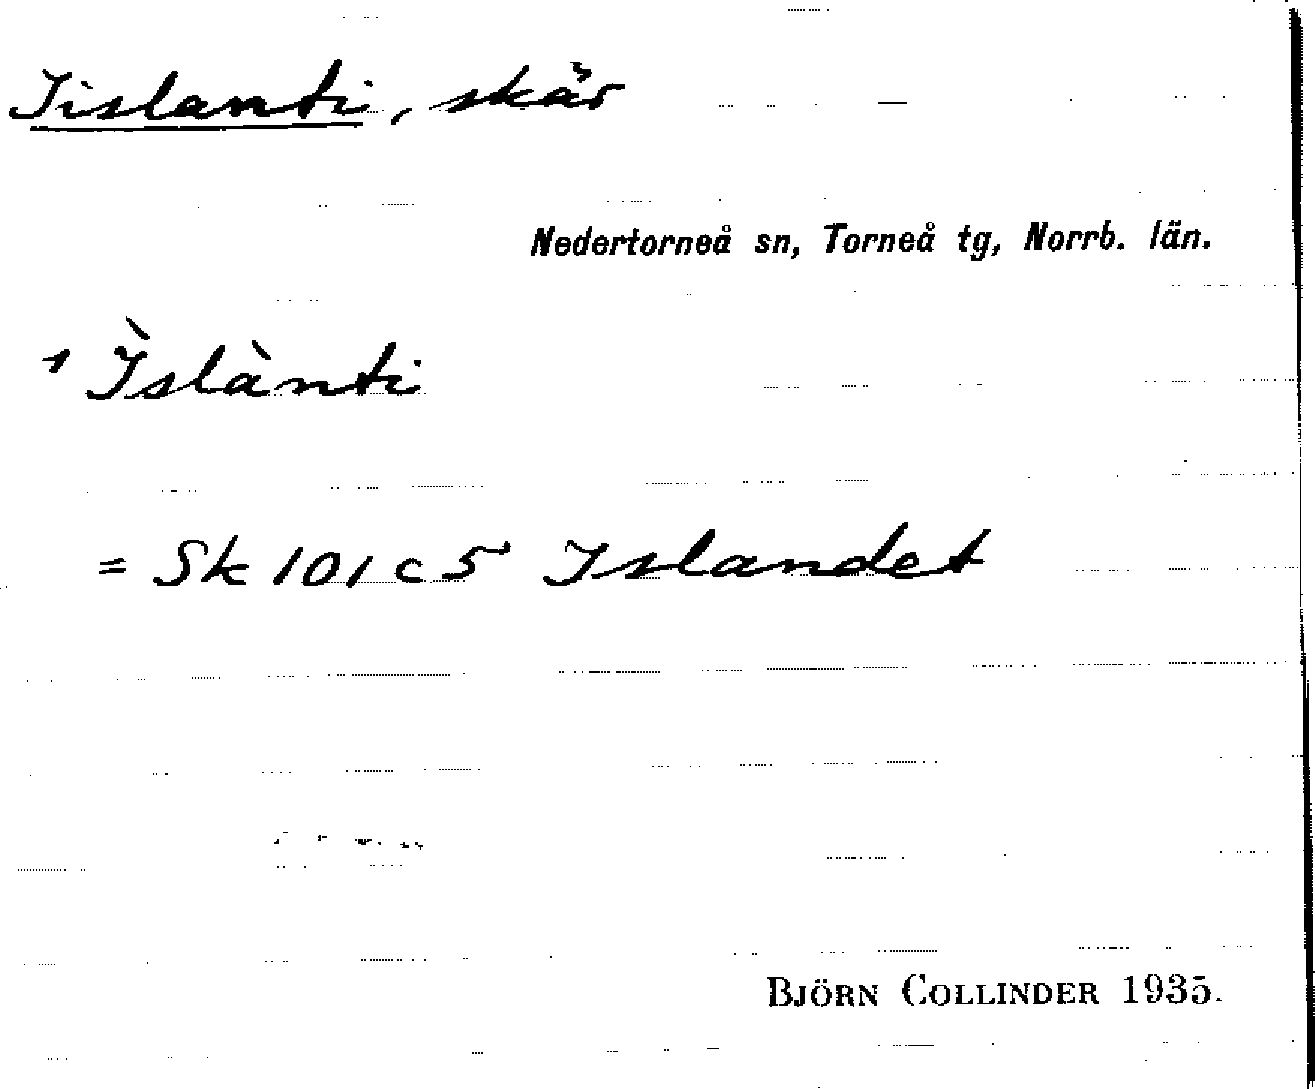 Iislanti, skär
Nedertorneå sn, Torneå tg, Norrb. län.
1 Ìslànti
= Sk 101 c 5 Islandet
BJÖRN COLLINDER 1935.